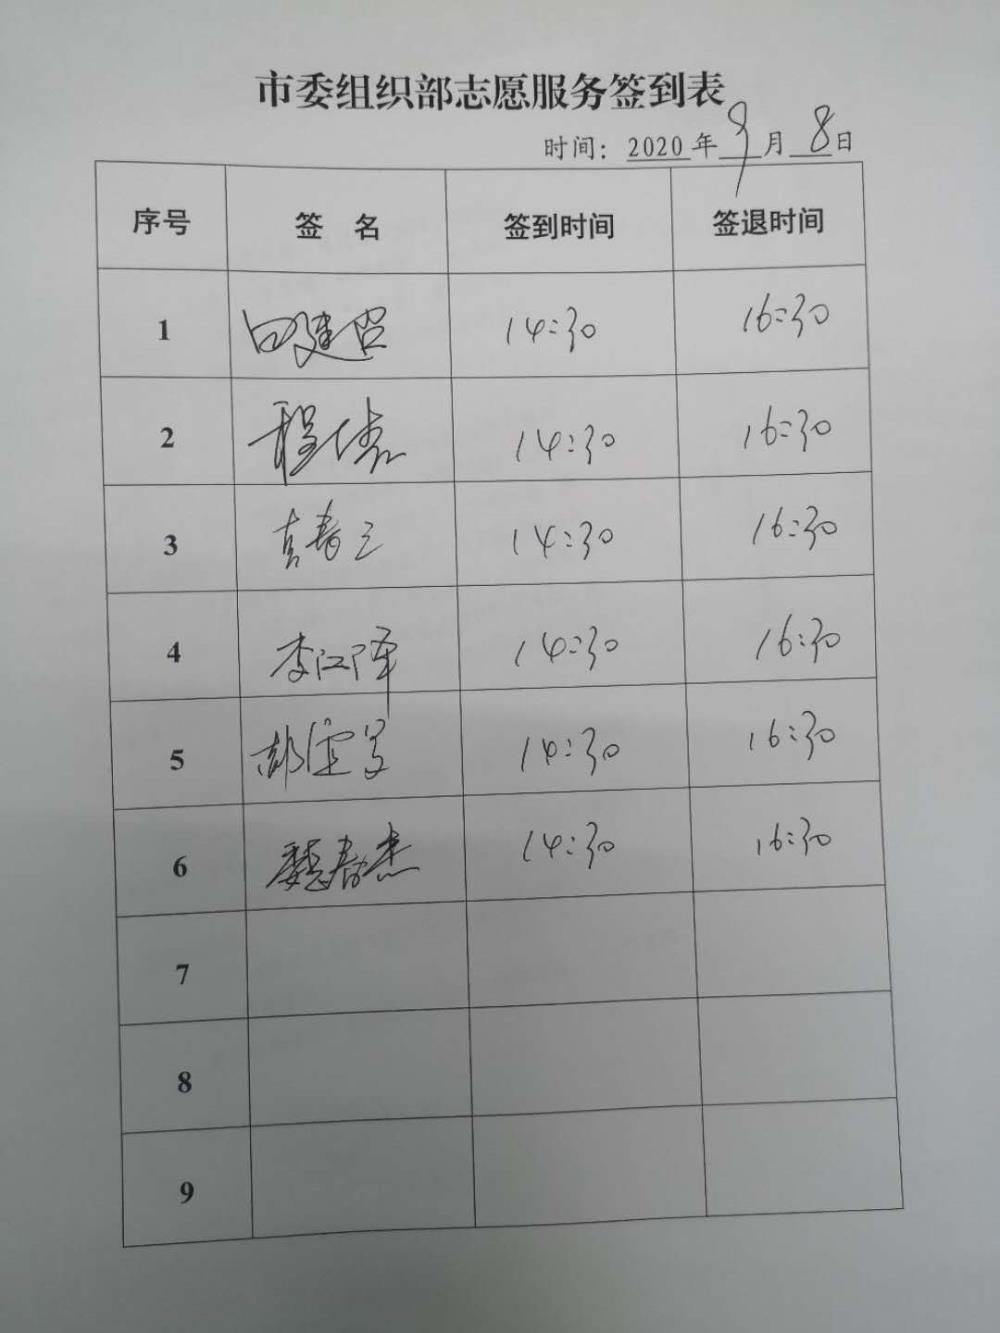 市委组织部志愿服务签到表
时间：2020年9月8日
序号 签 名 签到时间 签退时间
1 14:30 16:30
2 程倩 14:30 16:30
3 14:30 16:30
4 李江泽 14:30 16:30
5 14:30 16:30
6 魏春杰 14:30 16:30
7
8
9